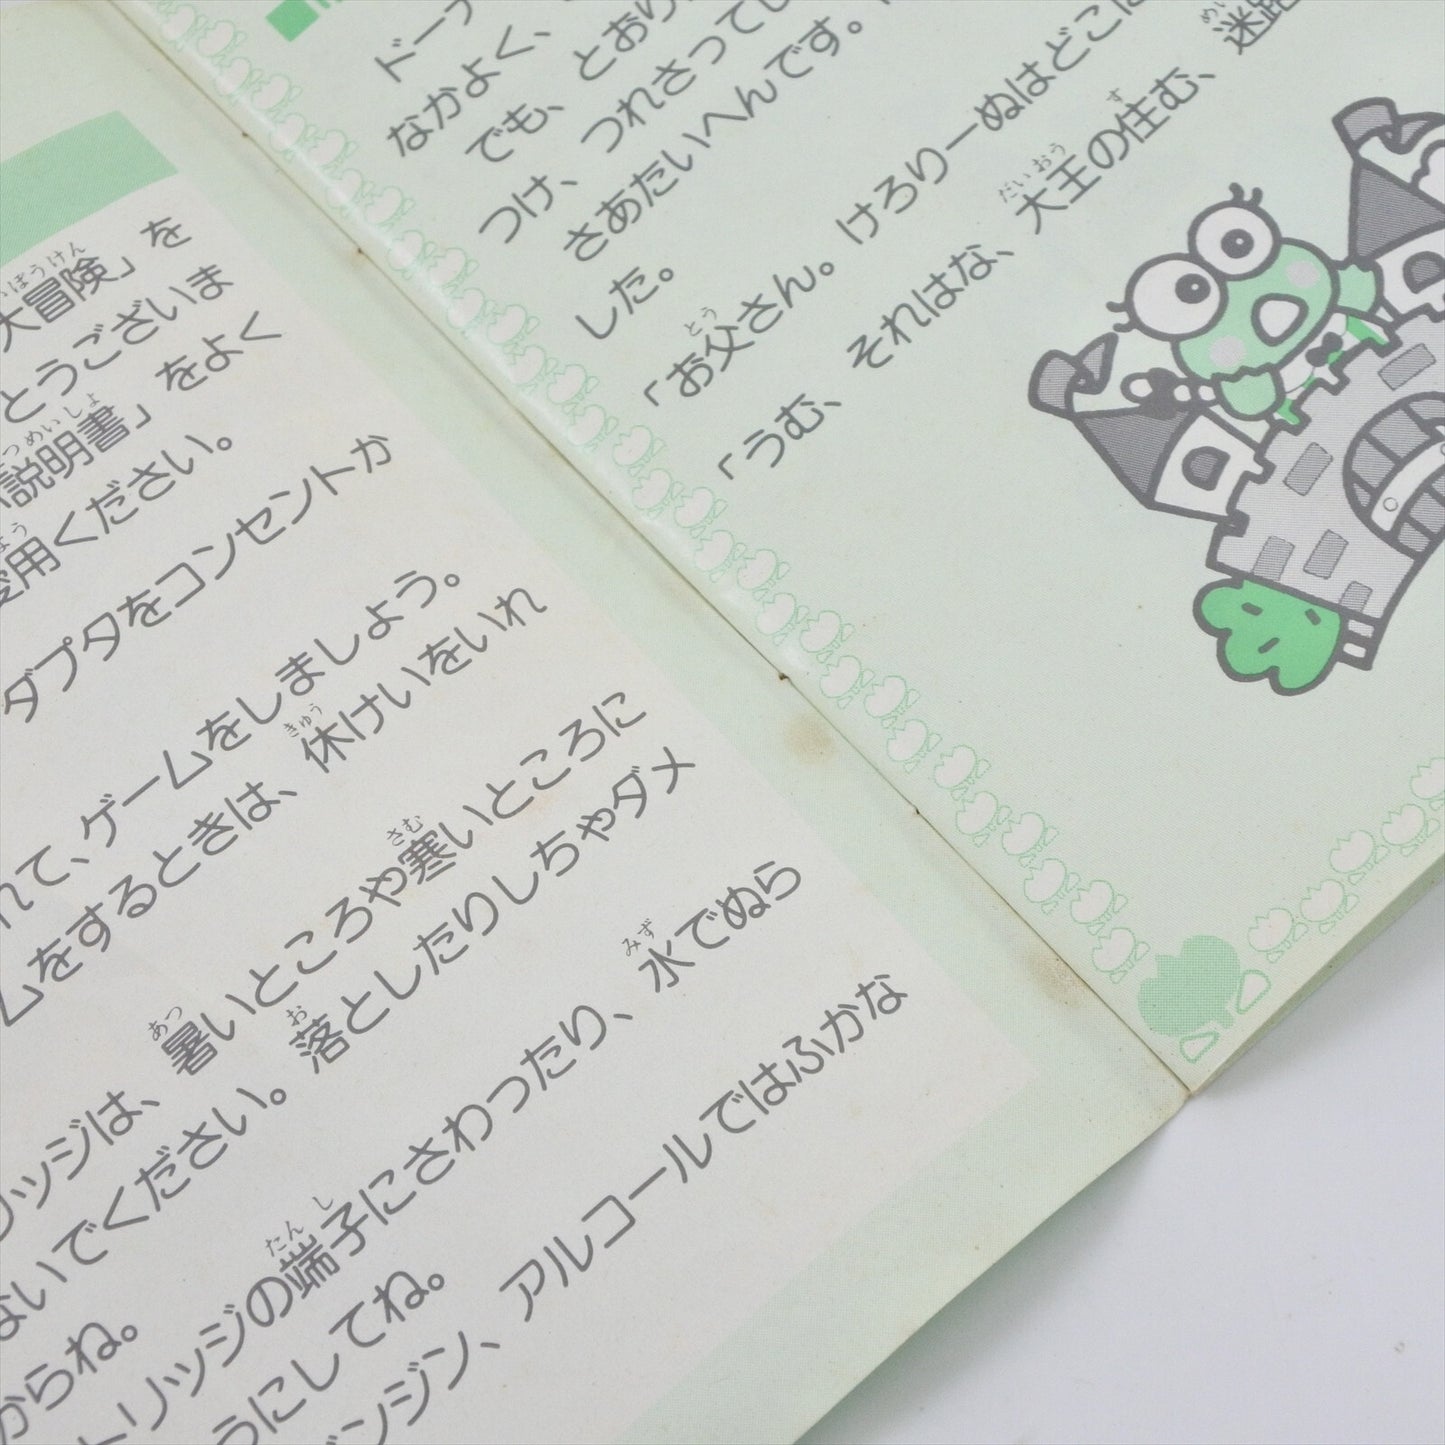 大冒険」を
とうございま
説明書」をよく
用ください。
ダプタをコンセントか
れて、ゲームをしましょう。
ムをするときは、休けいをいれ
リッジは、暑いところや寒いところに
ないでください。落としたりしちゃダメ
からね。
トリッジの端子にさわったり、水でぬら
うにしてね。
ンジン、アルコールではふかな
ドーナ
なかよく、
でも、とおり
つけ、つれさってし
さあたいへんです。
した。
「お父さん。けろりーぬはどこに
「うむ、それはな、大王の住む、迷路